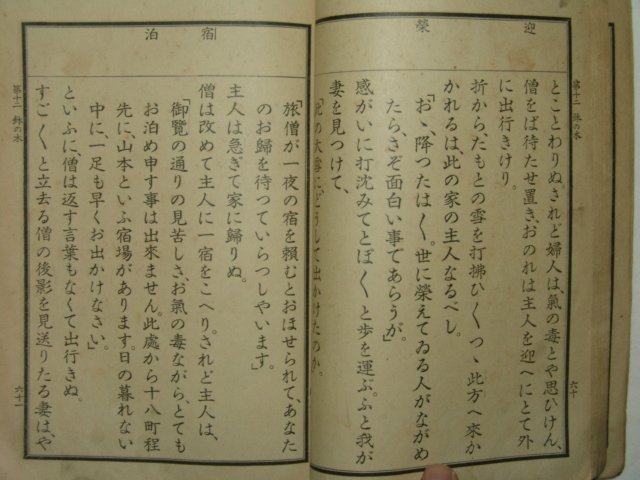 迎
榮
第十二 鉢の木
六十
とことわりぬ。されど婦人は、氣の毒とや思ひけん、
僧をば待たせ置き、おのれは主人を迎へにとて外
に出行きけり。
折から、たもとの雪を打拂ひ〱つゝ此方へ來か
かれるは、此の家の主人なるべし。
「おゝ、降つたは〱。世に榮えてゐる人がながめ
たら、さぞ面白い事であらうが。」
感がいに打沈みてとぼ〱と歩を運ぶ。ふと我が
妻を見つけて、
「此の大雪に、どうして出かけたのか。
宿
泊
「旅僧が一夜の宿を頼むとおほせられて、あなた
のお歸を待つていらつしやいます。」
主人は急ぎて家に歸りぬ。
僧は改めて主人に一宿をこへり。されど主人は、
「御覽の通りの見苦しさ、お氣の毒ながら、とても
お泊め申す事は出來ません。此處から十八町程
先に、山本といふ宿場があります。日の暮れない
中に、一足も早くお出かけなさい。」
といふに、僧は返す言葉もなくて出行きぬ。
すご〱と立去る僧の後影を見送りたる妻は、や
第十二 鉢の木
六十一